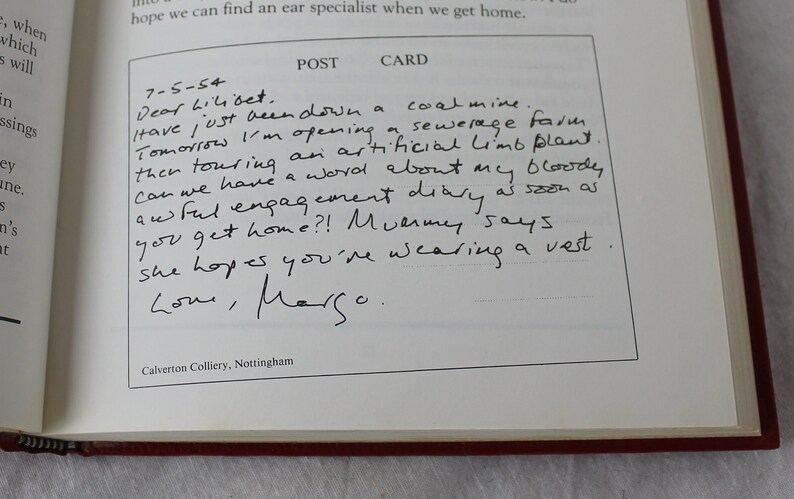 , when
which
s will
in
ssings
ey
une.
s
n's
nt
hope we can find an ear specialist when we get home.
POST CARD
7-5-54
Dear Lilibet.
Have just been down a coal mine.
Tomorrow I'm opening a sewerage farm
then touring an artificial limb plant.
can we have a word about my bloody
awful engagement diary as soon as
you get home?! Mummy says
she hopes you're wearing a vest.
Love, Margo.
Calverton Colliery, Nottingham